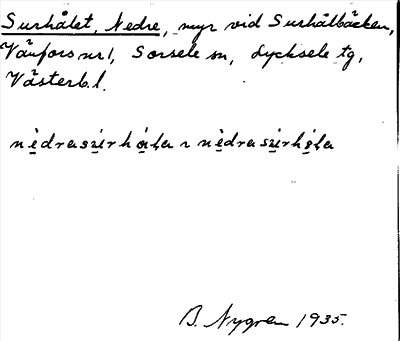 Surhålet, Nedre, myr vid Surhålbäcken,
Vänfors nr 1, Sorsele sn, Lycksele tg,
Västerb. l.
nèdraszirhóla ~ nèdraszirhóla
B. Nygren 1935.